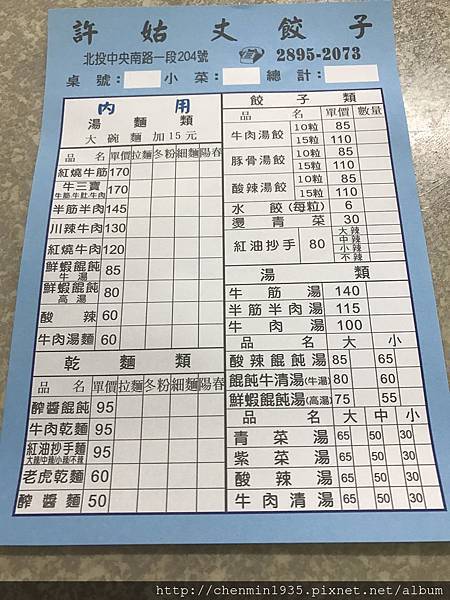 許姑丈餃子
北投中央南路一段204號 ☎ 2895-2073
桌號： 小菜： 總計：
內用
湯麵類
大碗麵加15元
品名 單價 拉麵 冬粉 細麵 陽春
紅燒牛筋 170
牛三寶 170
牛筋·牛肚·牛肉
半筋半肉 145
川辣牛肉 130
紅燒牛肉 120
鮮蝦餛飩 85
牛湯
鮮蝦餛飩 80
高湯
酸辣 60
牛肉湯麵 60
乾麵類
品名 單價 拉麵 冬粉 細麵 陽春
醡醬餛飩 95
牛肉乾麵 95
紅油抄手麵 95
大辣/中辣/小辣/不辣
老虎乾麵 60
醡醬麵 50
餃子類
品名 單價 數量
牛肉湯餃 10粒 85
15粒 110
豚骨湯餃 10粒 85
15粒 110
酸辣湯餃 10粒 85
15粒 110
水餃(每粒) 6
燙青菜 30
紅油抄手 80 大辣
中辣
小辣
不辣
湯類
牛筋湯 140
半筋半肉湯 115
牛肉湯 100
品名 大 小
酸辣餛飩湯 85 65
餛飩牛清湯(牛湯) 80 60
鮮蝦餛飩湯(高湯) 75 55
品名 大 中 小
青菜湯 65 50 30
紫菜湯 65 50 30
酸辣湯 65 50 30
牛肉清湯 65 50 30
http://chenmin1935.pixnet.net/album